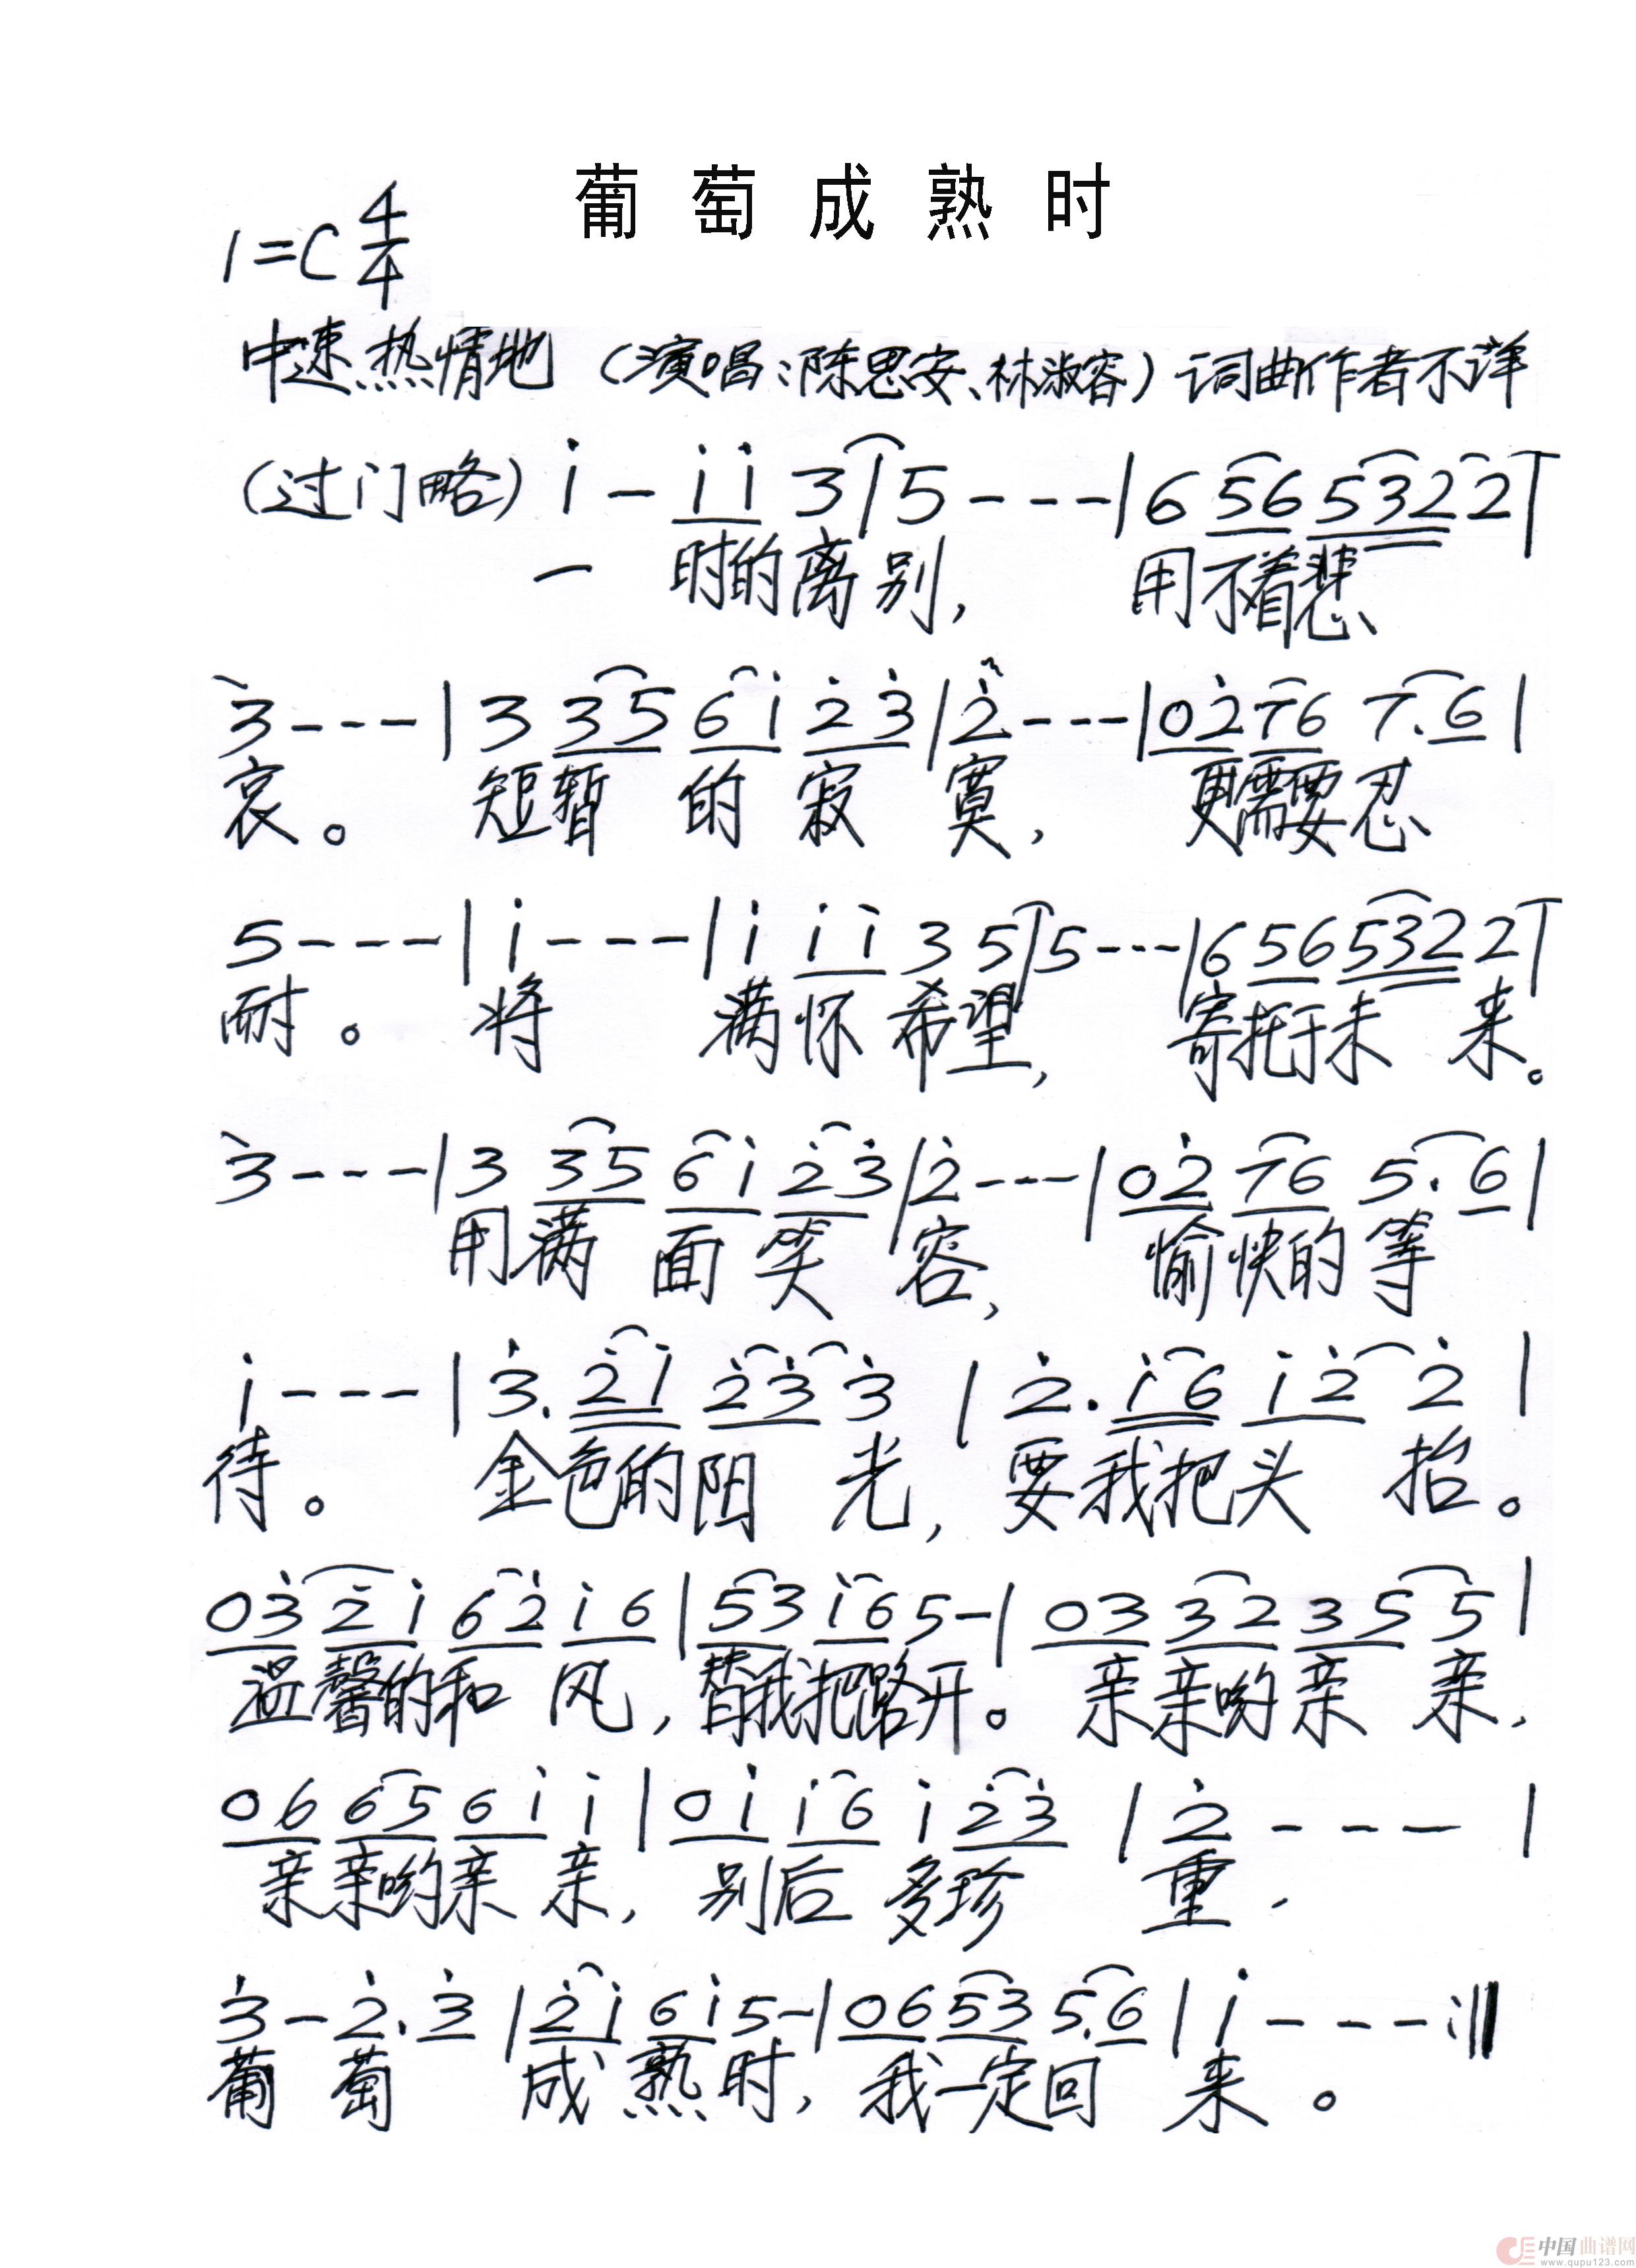 葡萄成熟时
1=C 4/4
中速热情地 (演唱:陈思安、林淑容) 词曲作者不详
(过门略) i - i i 3 | 5 - - - | 6 5 6 5 3 2 2 |
一 时的离别, 用不着悲
3 - - - | 3 3 5 6 i 2 3 | 2 - - - | 0 2 7 6 7. 6 |
哀。 短暂 的 寂 寞, 更需要忍
5 - - - | i - - - | i i i 3 5 | 5 - - - | 6 5 6 5 3 2 2 |
耐。 将 满怀希望, 寄托于未 来。
3 - - - | 3 3 5 6 i 2 3 | 2 - - - | 0 2 7 6 5. 6 |
用满 面 笑 容, 愉快的等
i - - - | 3. 2 i 2 3 3 | 2. i 6 i 2 2 |
待。 金色的阳 光, 要我把头 抬。
0 3 2 i 6 2 i 6 | 5 3 i 6 5 - | 0 3 3 2 3 5 5 |
温馨的和 风, 替我把路开。 亲亲哟亲 亲,
0 6 6 5 6 i i | 0 i i 6 i 2 3 | 2 - - - |
亲亲哟亲 亲, 别后 多珍 重,
3 - 2. 3 | 2 i 6 i 5 - | 0 6 5 3 5. 6 | i - - - :||
葡 萄 成 熟 时, 我一定回 来。
中国曲谱网
www.qupu123.com